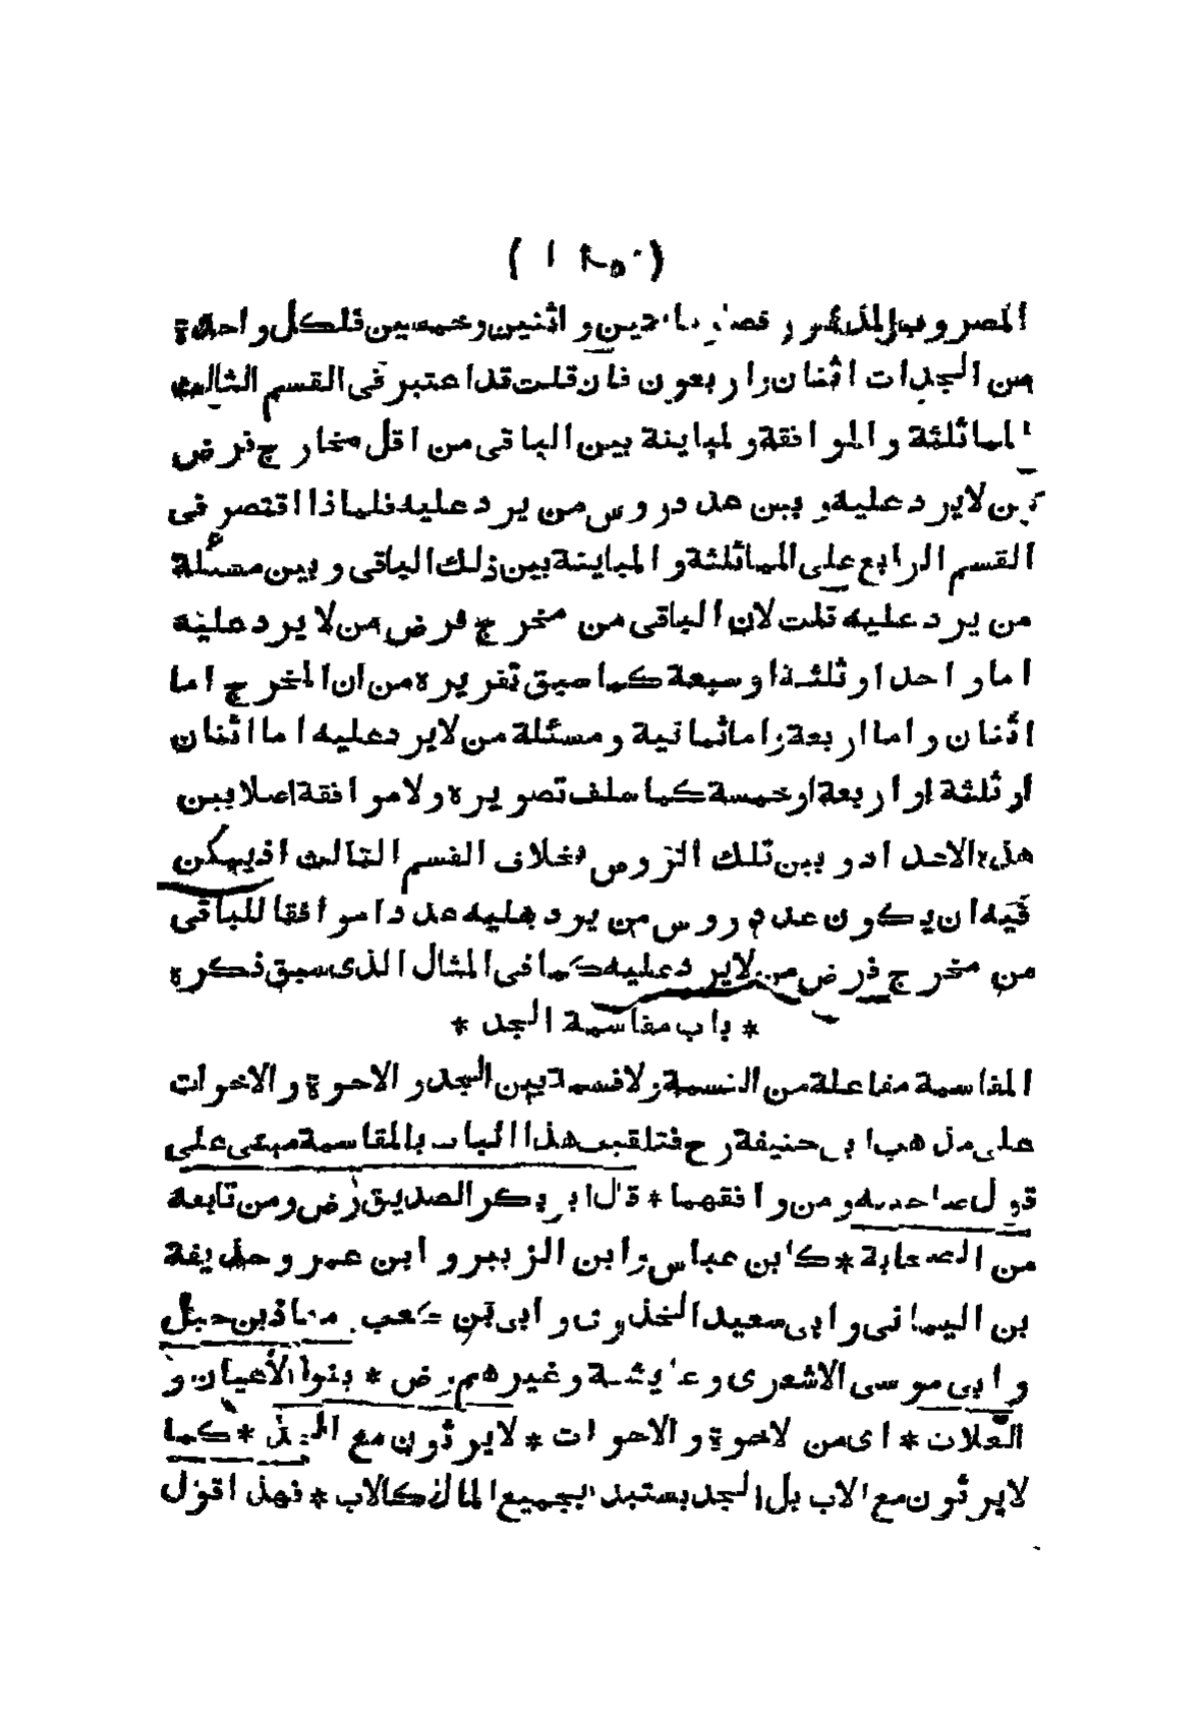 المضروب المذكور فصار مائتين واثنين وخمسين فلكل واحدة
من الجدات اثنان واربعون فان قلت قد اعتبر فى القسم الثالث
المماثلثة والموافقة والمباينة بين الباقى من اقل مخارج فرض
من لايرد عليه وبين عدد روس من يرد عليه فلماذا اقتصر فى
القسم الرابع على المماثلثة والمباينة بين ذلك الباقى وبين مسئلة
من يرد عليه قلت لان الباقى من مخرج فرض من لا يرد عليه
اما واحد او ثلثة او سبعة كما سبق تقريره من ان المخرج اما
اثنان واما اربعة واما ثمانية ومسئلة من لايرد عليه اما اثنان
او ثلثة او اربعة او خمسة كما سلف تصويره ولا موافقة اصلا بين
هذه الاعداد وبين تلك الروس بخلاف القسم الثالث اذ يمكن
فيه ان يكون عدد روس من يرد عليه عددا موافقا للباقى
من مخرج فرض من لايرد عليه كما فى المثال الذى سبق ذكره
* باب مقاسمة الجد *
المقاسمة مفاعلة من القسمة ولا قسمة بين الجد والاخوة والاخوات
على مذهب ابى حنيفة رح فتلقيب هذا الباب بالمقاسمة مبنى على
قول صاحبيه ومن وافقهما * قال ابو بكر الصديق رض ومن تابعه
من الصحابة * كابن عباس وابن الزبير وابن عمر وحذيفة
بن اليمانى وابى سعيد الخذرى وابى بن كعب ومعاذ بن جبل
وابى موسى الاشعرى وعايشة وغيرهم رض * بنوا الاعيان و
العلات * اى من الاخوة والاخوات * لايرثون مع الجد * كما
لايرثون مع الاب بل الجد يستبد بجميع المال كالاب * فهذا قول